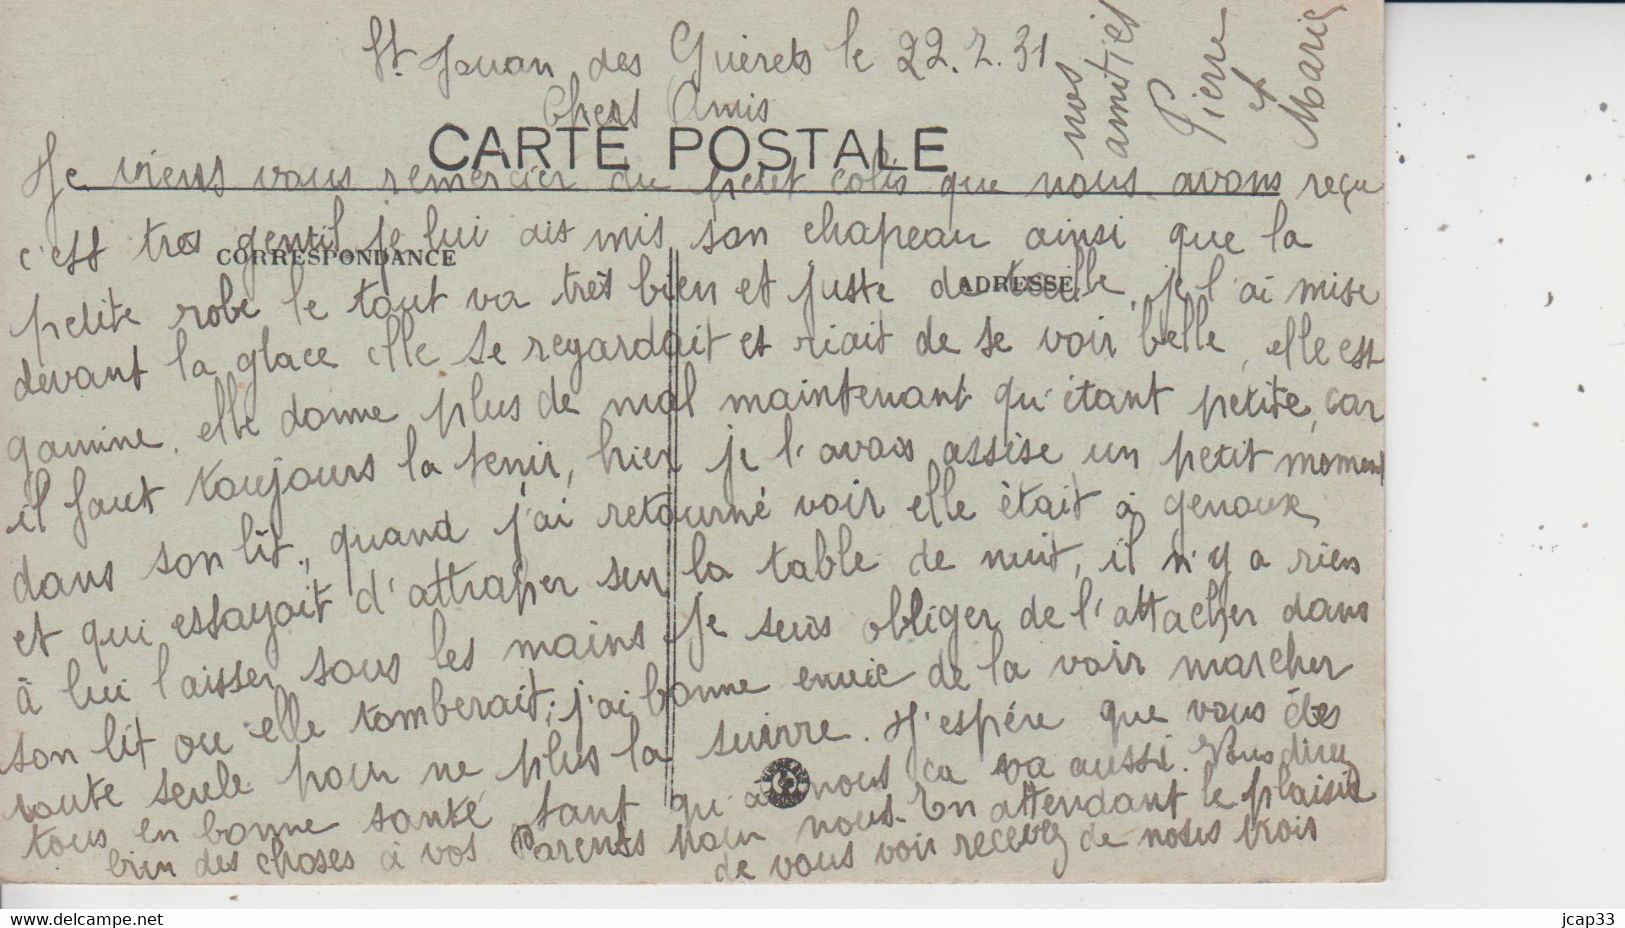 St Jouan des Guérets le 22.7.31
Chers Amis
CARTE POSTALE
Je viens vous remercier du petit colis que nous avons reçu
c'est très gentil je lui ais mis son chapeau ainsi que la
CORRESPONDANCE
ADRESSE
petite robe le tout va très bien et juste de taille, je l'ai mise
devant la glace elle se regardait et riait de se voir belle, elle est
gamine. elle donne plus de mal maintenant qu'étant petite, car
il faut toujours la tenir, hier je l'avais assise un petit moment
dans son lit., quand j'ai retourné voir elle était à genoux
et qui essayait d'attraper sur la table de nuit, il n'y a rien
à lui laisser sous les mains. Je suis obliger de l'attacher dans
son lit ou elle tomberait; j'ai bonne envie de la voir marcher
toute seule pour ne plus la suivre. J'espére que vous étes
tous en bonne santé, tant qu'à nous ça va aussi. Vous direz
bien des choses à vos Parents pour nous. En attendant le plaisir
de vous voir recevez de nous trois
nos
amitiés
Pierre
et
Marie
www.delcampe.net
jcap33